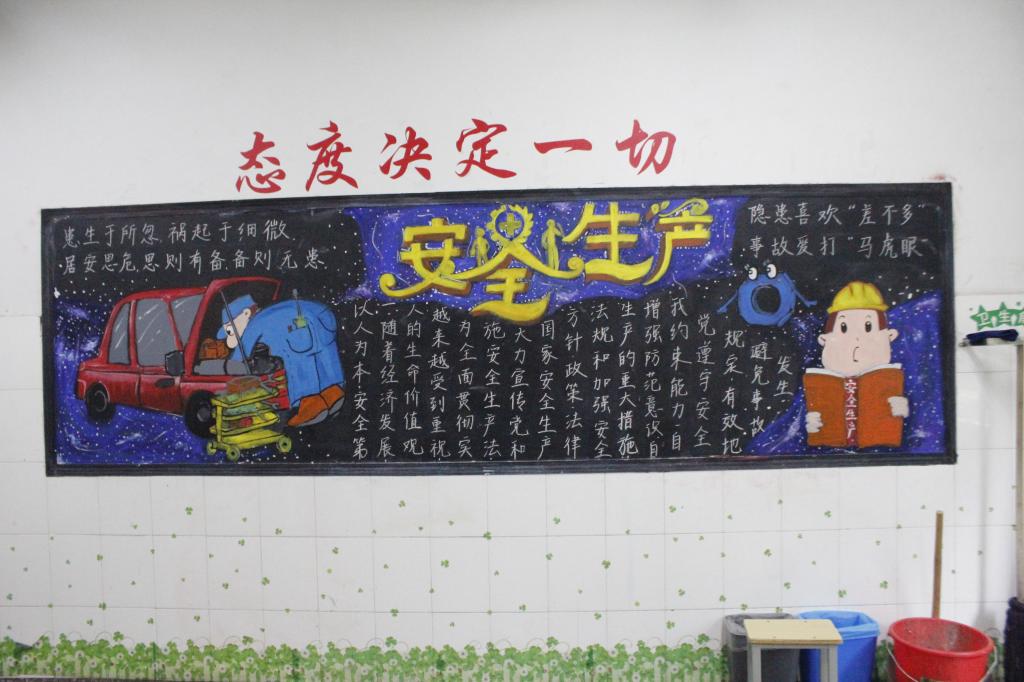 态度决定一切
患生于所忽,祸起于细微
居安思危,思则有备,备则无患
安全生产
隐患喜欢“差不多”
事故爱打“马虎眼”
以人为本安全第
随着经济发展
人的生命价值观
越来越受到重视
为全面贯彻实
施安全生产法
大力宣传党和
国家安全生产
方针政策法律
法规和加强安全
生产的重大措施
增强防范意识自
我约束能力,自
党遵守安全
规定,有效地
避免事故
发生
安全生产
卫生